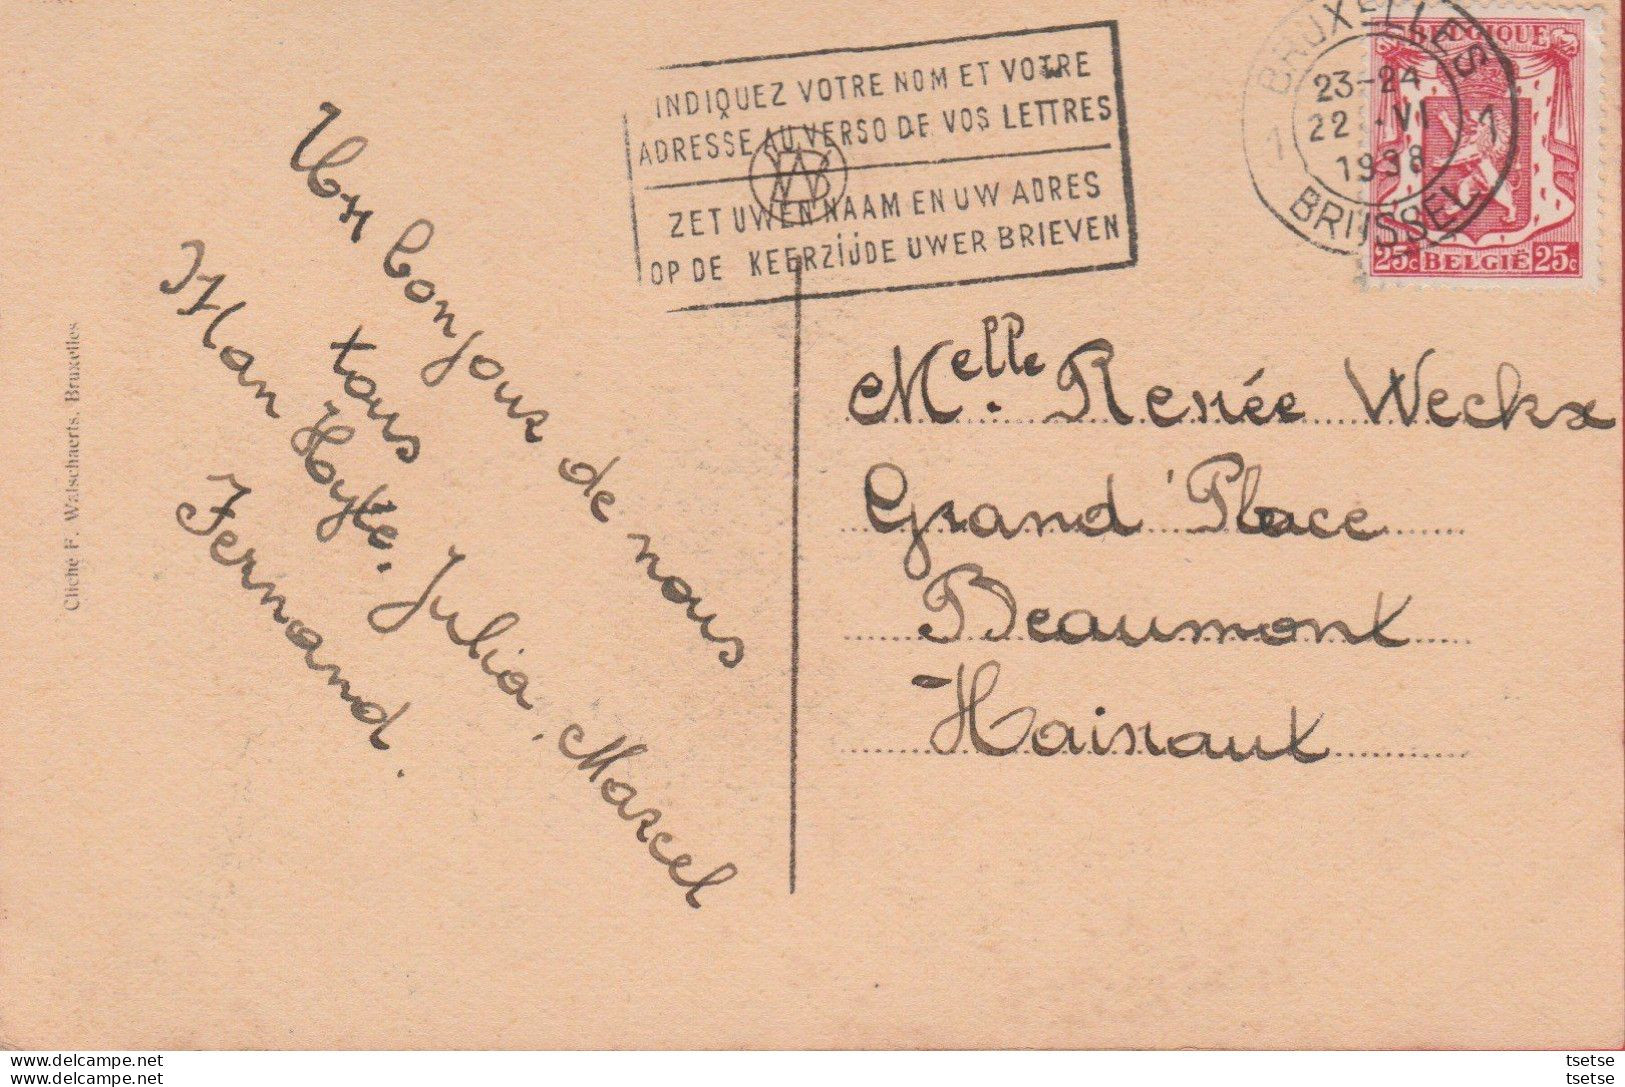 INDIQUEZ VOTRE NOM ET VOTRE
ADRESSE AU VERSO DE VOS LETTRES
ZET UW EN NAAM EN UW ADRES
OP DE KEERZIJDE UWER BRIEVEN
BRUXELLES
23-24
22 · VI
1938
1 1
BRUSSEL
BELGIQUE
25c BELGIË 25c
Un bonjour de nous
tous
Julia, Marcel
Fernand.
Melle. Renée Weckx
Grand'Place
Beaumont
Hainaut
Cliché F. Walschaerts, Bruxelles
delcampe.net
delcampe.net
tsetse
tsetse